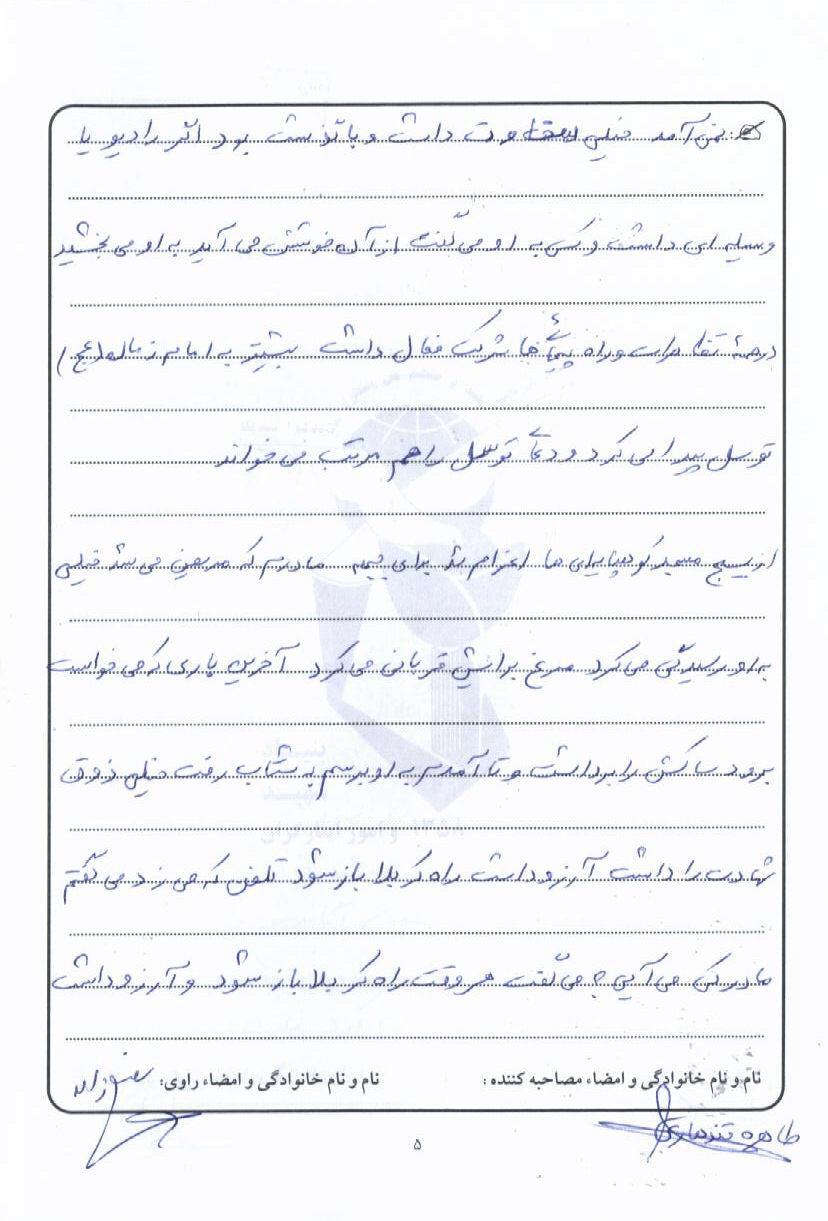 نمی‌آمد خیلی سخاوت داشت و با گذشت بود اگر رادیو یا
وسیله ای داشت و کسی به او می گفت از آن خوشش می آید به او می بخشید
در همۀ تظاهرات و راه پیمائی ها شرکت فعال داشت بیشتر به امام زمان (عج)
توسل پیدا می کرد و دعای توسل را هم مرتب می خواند
از بسیج مسجد کوهپایه‌ای ها اعزام شد برای جبهه مادرم که مریض می شد خیلی
به او رسیدگی می کرد مرغ برایش قربانی می کرد آخرین باری که می خواست
برود ساکش را برداشت و تا آمدم به او برسم به شتاب رفت خیلی ذوق
شهادت را داشت آرزو داشت راه کربلا باز شود تلفن که می زد می گفتم
مادر کی می آیی؟ می گفت هر وقت راه کربلا باز شود و آرزو داشت
نام و نام خانوادگی و امضاء مصاحبه کننده : نام و نام خانوادگی و امضاء راوی:
طاهره قندهاری
۵